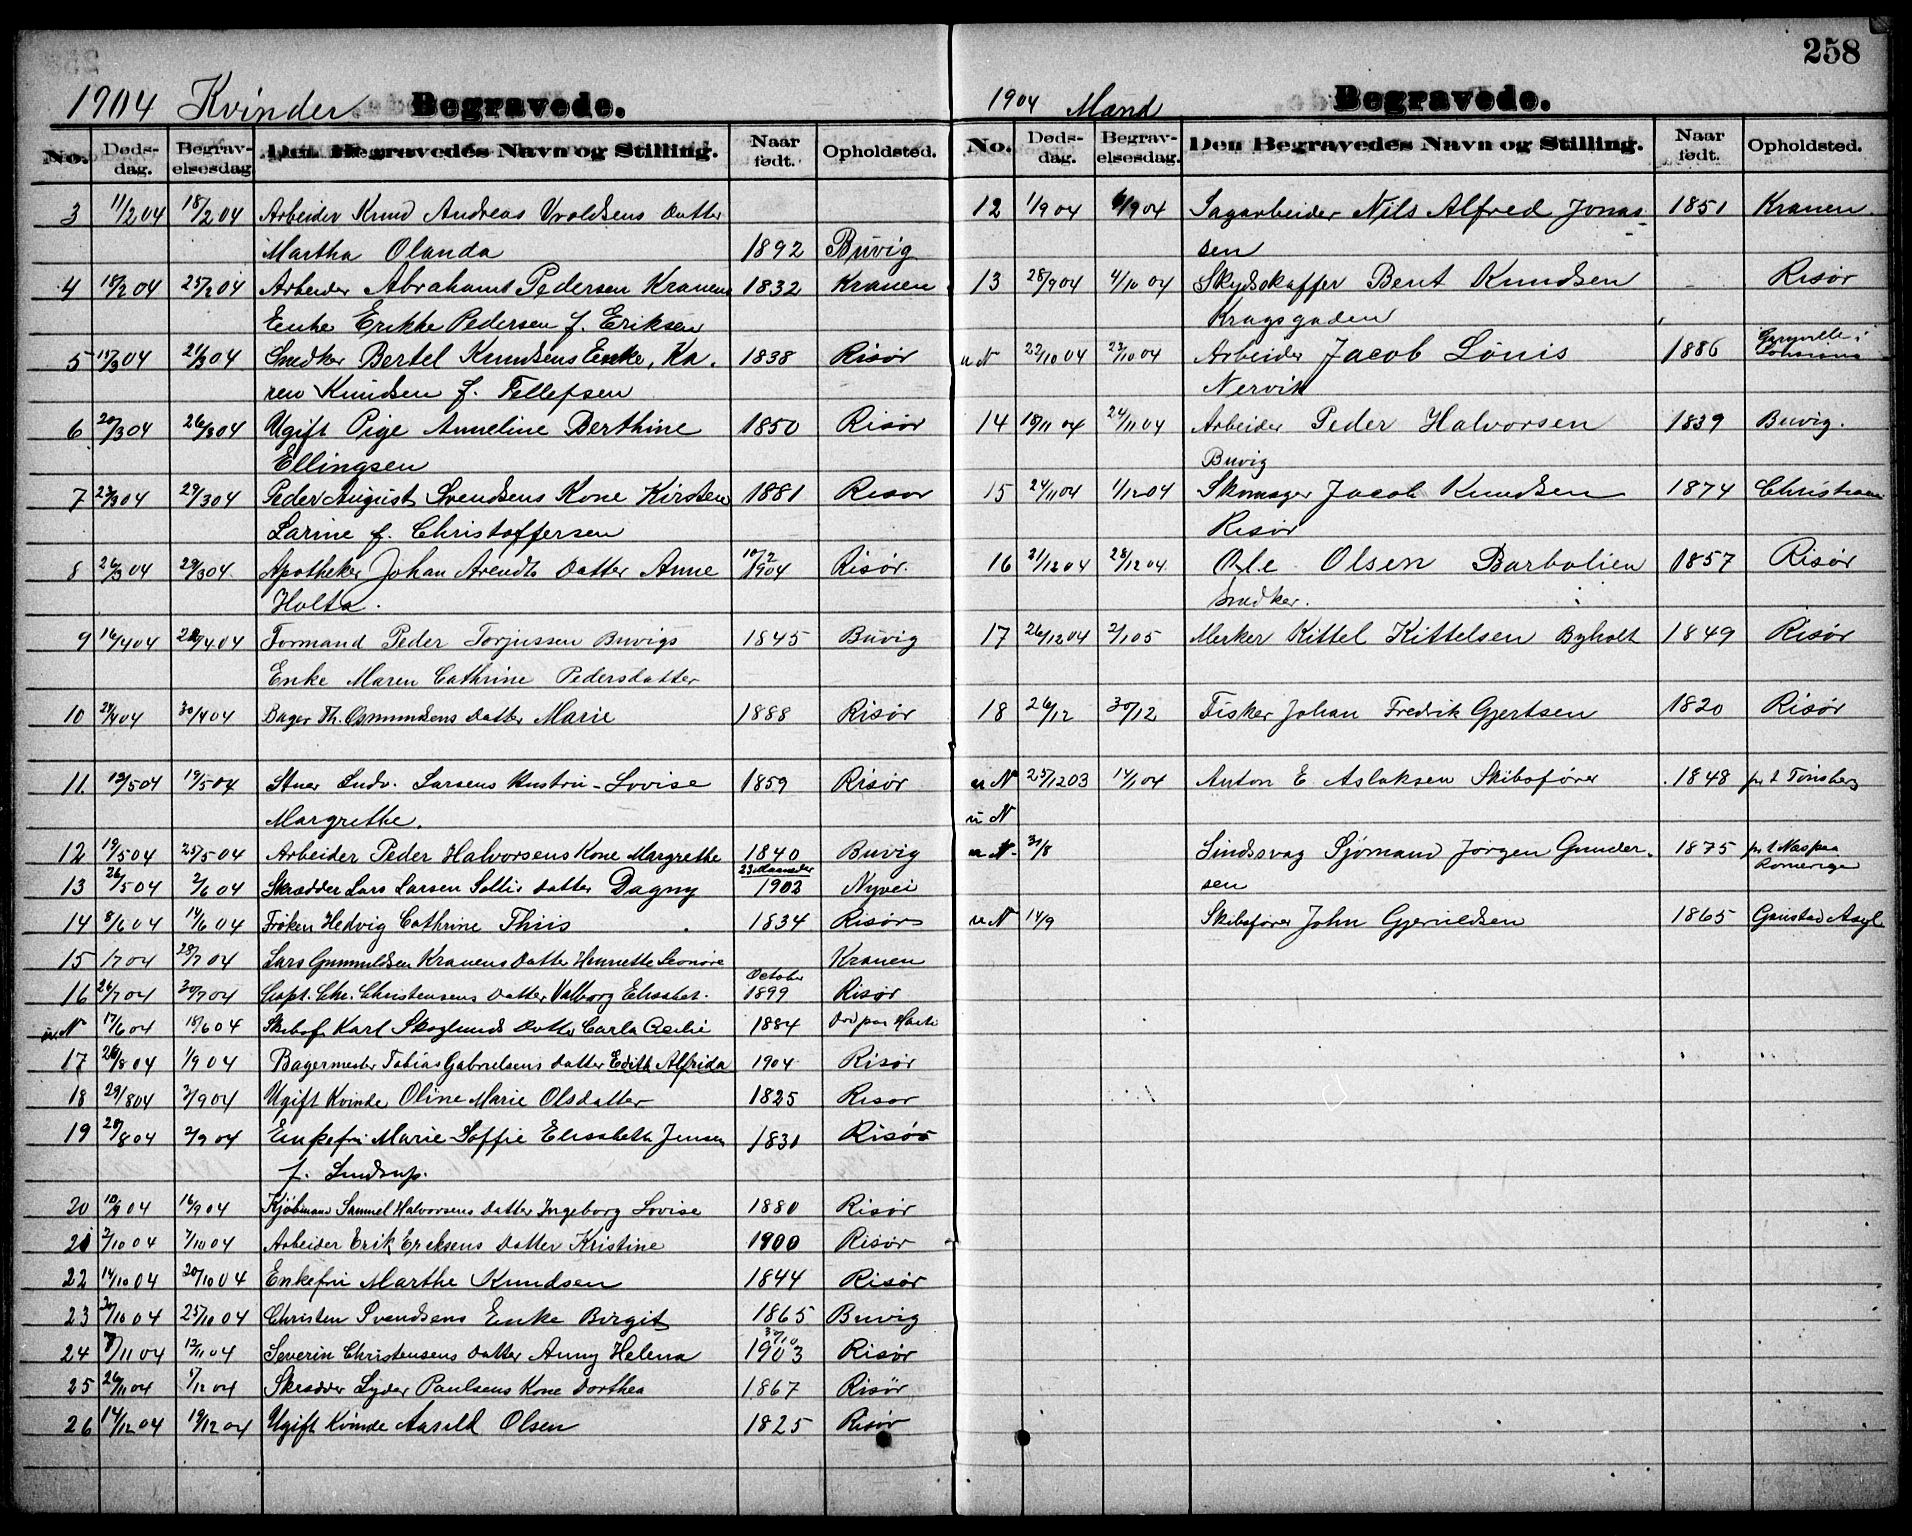 258
1904 Kvinder Begravede.
No. Døds-dag. Begrav-elsesdag Den Begravedes Navn og Stilling. Naar født. Opholdsted.
3 11/2 04 18/2 04 Arbeider Knud Andreas Vroldsens Datter
Martha Olanda 1892 Buvig
4 18/2 04 25/2 04 Arbeider Abraham Pedersen Kranens 1832 Kranen
Enke Erikke Pedersen f. Eriksen
5 15/3 04 21/3 04 Snedker Bertel Knudsens Enke, Ka- 1838 Risør
ren Knudsen f. Tellefsen
6 20/3 04 26/3 04 Ugift Pige Anneline Berthine 1850 Risør
Ellingsen
7 23/3 04 29/3 04 Peder August Svendsens Kone Kirsten 1881 Risør
Larine f. Christoffersen
8 26/3 04 29/3 04 Apotheker Johan Arendts Datter Anne 1904 Risør.
Holta.
9 16/4 04 4 04 Formand Peder Torjussen Buvigs 1845 Buvig
Enke Maren Cathrine Pedersdatter
10 /4 04 30/4 04 Bager Th. Osmundsens Datter Marie 1888 Risør
11. 12/5 04 19/5 04 Stuer Ludv. Larsens Hustru - Lovise 1859 Risør
Margrethe.
12 19/5 04 25/5 04 Arbeider Peder Halvorsens Kone Margrethe 1840 Buvig
23 Maaneder
13 26/5 04 2/6 04 Skrædder Lars Larsen Datter Dagny 1902 Nyvei
14 8/6 04 14/6 04 Frøken Hedvig Cathrine Thiis 1834 Risør
15 1/7 04 /7 04 Lars Gunnuldsen Kranens Datter Henriette Leonore Kranen
October
16 26/7 04 30/7 04 Capt. Chr. Christensens Datter Valborg Elisabet. 1899 Risør
u. N 17/6 04 18/6 04 Skibsf. Karl Skoglunds Datter Carla Cecilie 1884 Død paa
17 26/8 04 1/9 04 Bagermester Tobias Gabrielsens Datter Edith Alfrida 1904 Risør
18 29/8 04 3/9 04 Ugift Kvinde Oline Marie Olsdatter 1825 Risør
19 /8 04 2/9 04 Enkefru Marie Soffie Elisabeth Jensen 1831 Risør
f. Lindrup.
20 10/9 04 16/9 04 Kjøbmand Samuel Halvorsens Datter Ingeborg Lovise 1880 Risør
21 2/10 04 7/10 04 Arbeider Erik Eriksens Datter Kristine 1900 Risør
22 14/10 04 20/10 04 Enkefru Marthe Knudsen 1844 Risør
23 20/10 04 25/10 04 Christen Svendsens Enke Birgit 1865 Buvig
30/10
24 /11 04 12/11 04 Severin Christensens Datter Anny Helena 1903 Risør
25 26/11 04 1/12 04 Skrædder Lyder Paulsens Kone Dorthea 1867 Risør
26 14/12 04 19/12 04 Ugift Kvinde Aasild Olsen 1825 Risør
1904 Mænd Begravede.
No. Døds-dag. Begrav-elsesdag. Den Begravedes Navn og Stilling. Naar født. Opholdsted.
12 1/9 04 6/9 04 Sagarbeider Nils Alfred Jonas- 1851 Kranen.
sen
13 28/9 04 4/10 04 Skydsskaffer Bent Knudsen - Risør
Kragsgaden
u N 22/10 04 /10 04 Arbeider Jacob Lönis 1886
Nervik
14 18/11 04 24/11 04 Arbeider Peder Halvorsen 1839 Buvig.
Buvig
15 24/11 04 1/12 04 Skomager Jacob Knudsen 1874
Risør
16 21/12 04 28/12 04 Ole Olsen Barbolien 1857 Risør
Snedker.
17 26/12 04 2/1 05 Merker Kittel Kittelsen Byholt 1849 Risør
18 26/12 30/12 Fisker Johan Fredrik Gjertsen 1820 Risør
u N 25/12 03 14/1 04 Anton E Aslaksen Skibsfører 1848
u N
u N. 30/8 Lindsvag Sjømand Jørgen Gunder- 1875
sen Romerige
u N 14/9 Skibsfører John Gjeruldsen 1865 Gaustad Asyl